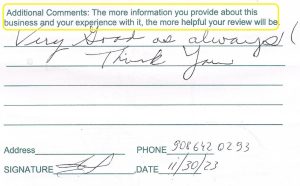 Additional Comments: The more information you provide about this
business and your experience with it, the more helpful your review will be.
Very Good as always!
Thank You
Address
PHONE 908 642 0293
SIGNATURE DATE 11/30/23